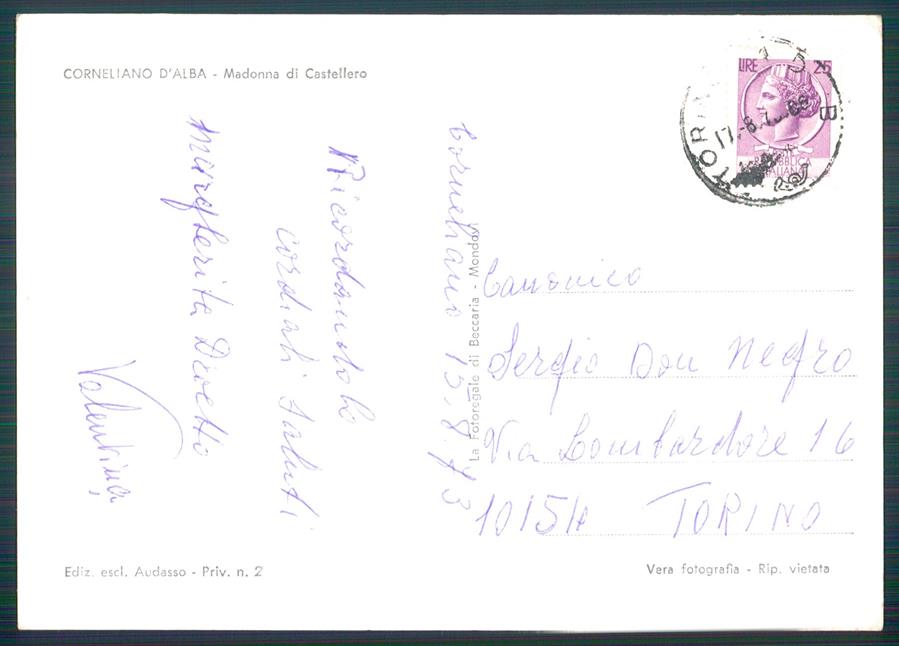 CORNELIANO D'ALBA - Madonna di Castellero
LIRE 25
REPUBBLICA
ITALIANA
17.-8.7
B
Corneliano 15.8.73
Ricordandola
cordiali saluti
Margherita
Valentina
La Fotoregale di Beccaria - Mondovì
Canonico
Sergio Don Negro
Via Lombardore 16
10154 TORINO
Ediz. escl. Audasso - Priv. n. 2
Vera fotografia - Rip. vietata